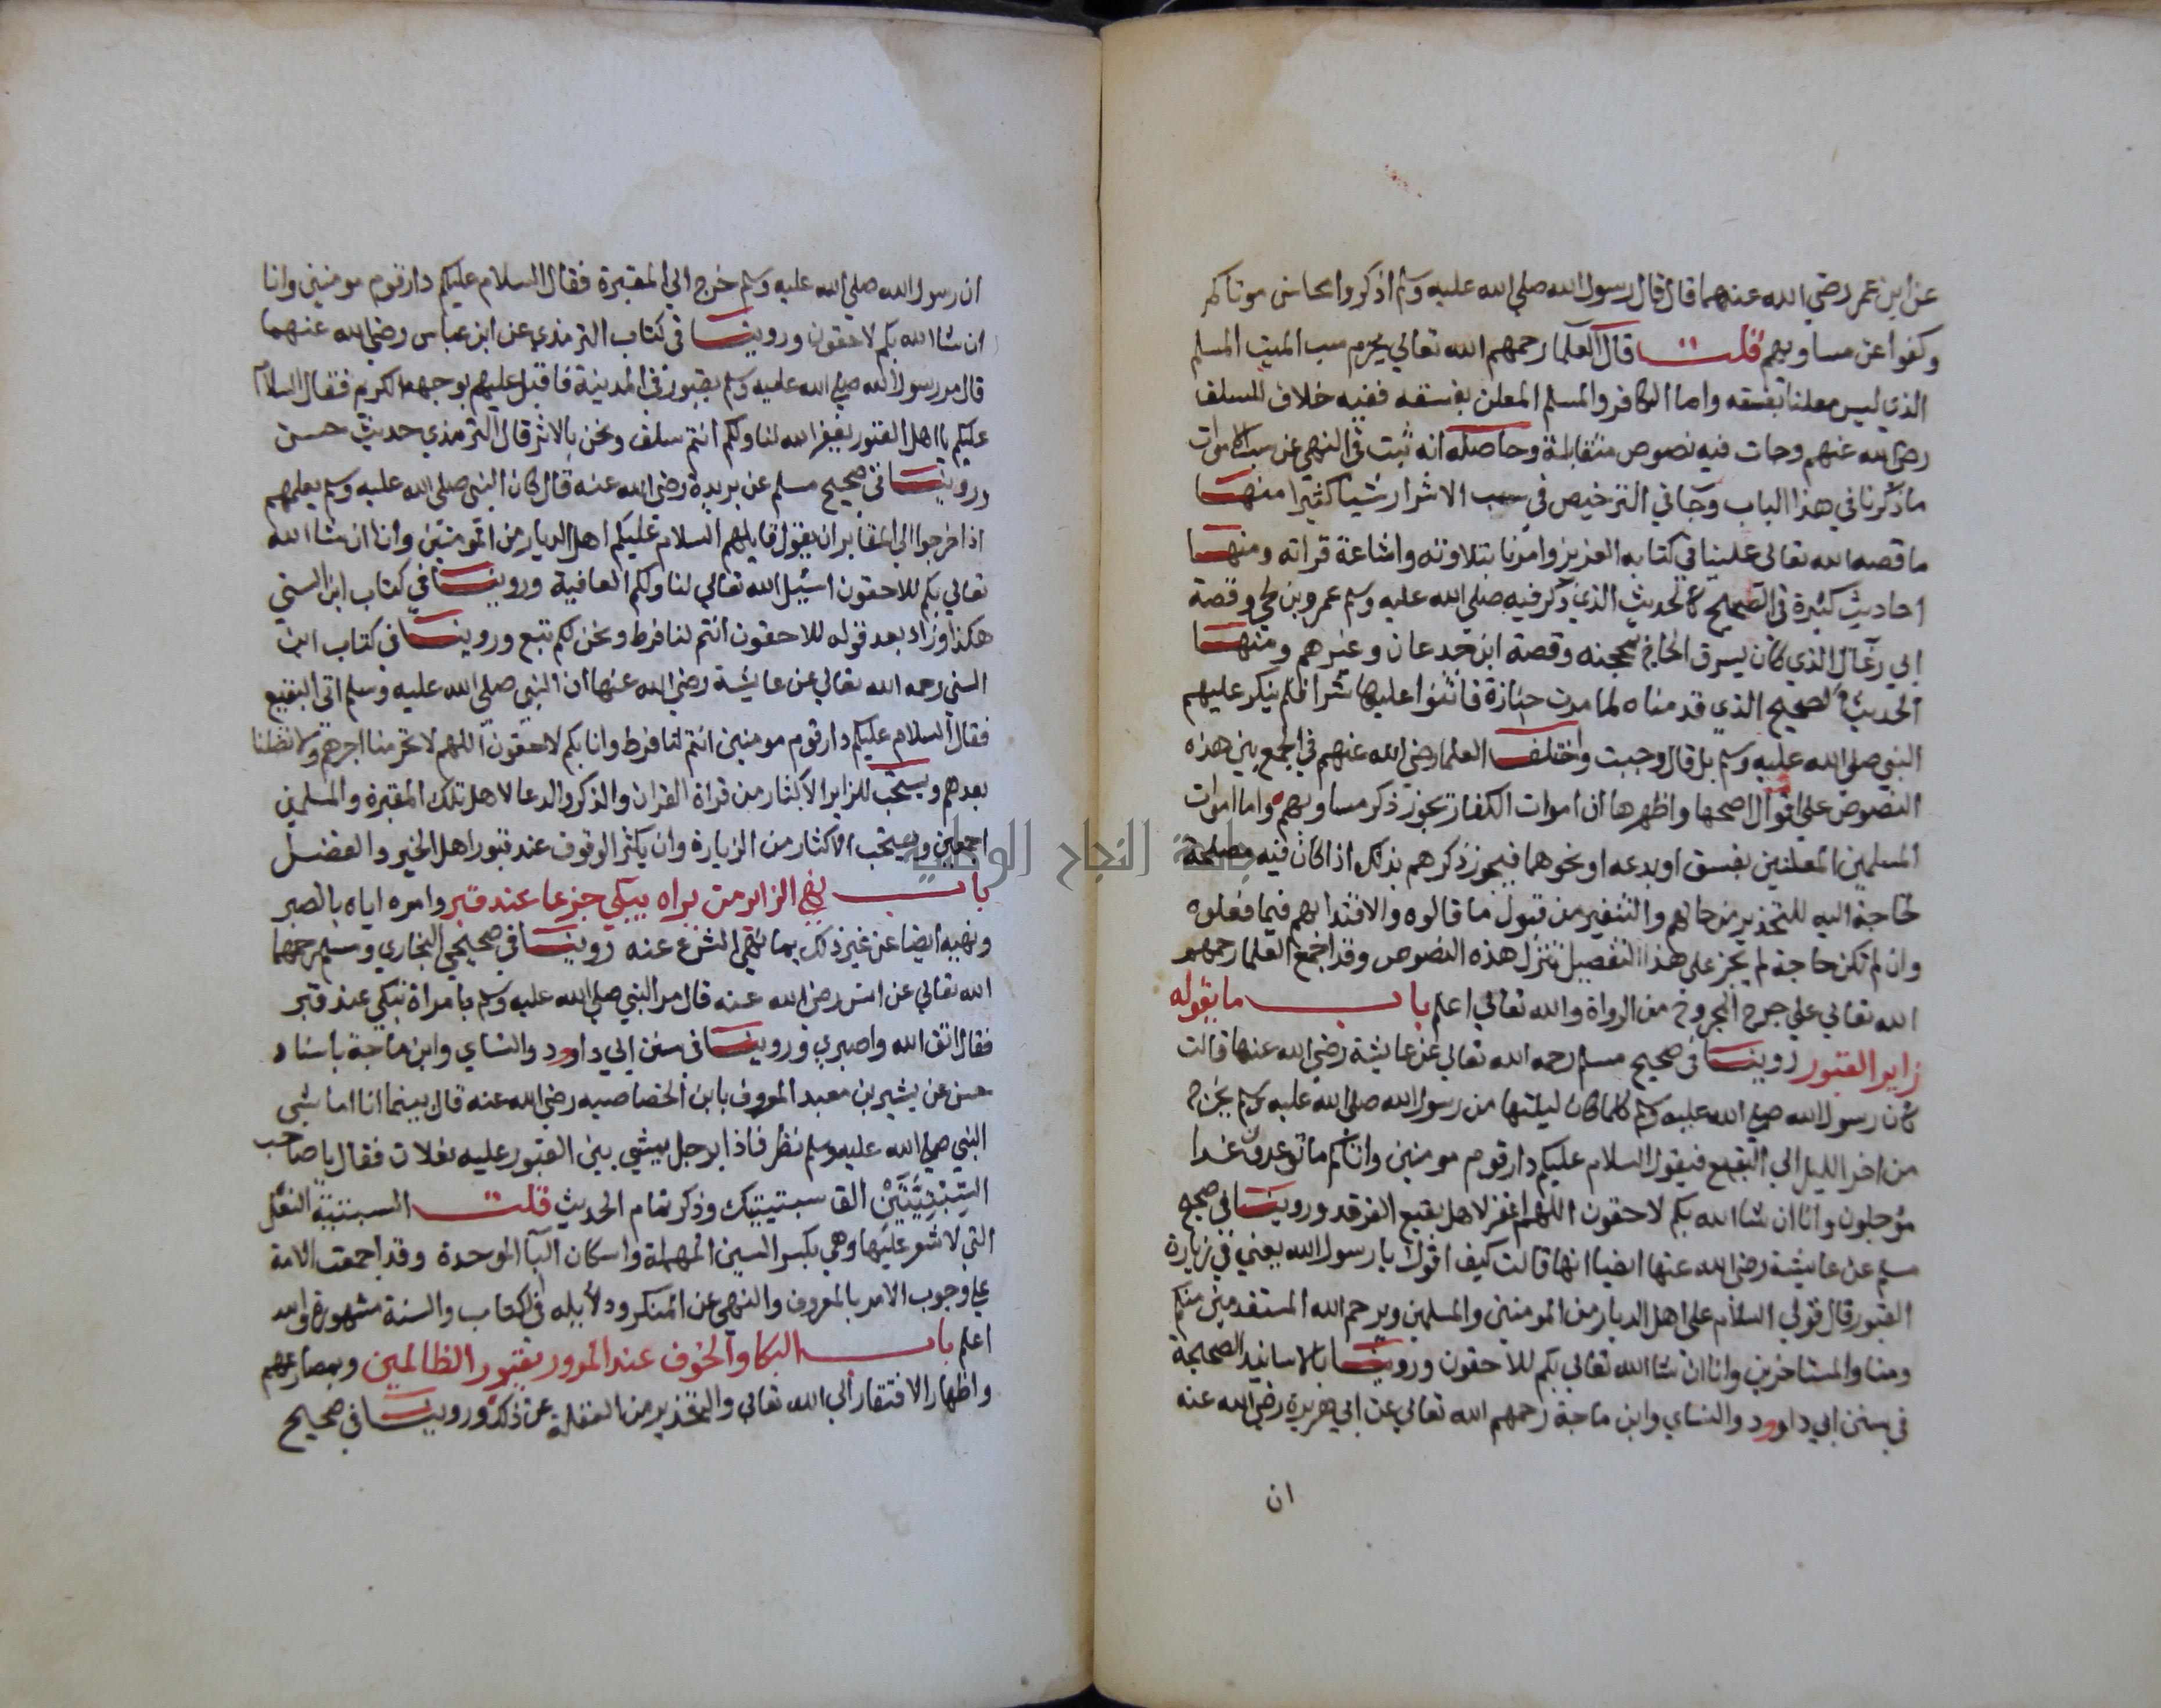 عن ابن عمر رضي الله عنهما قال قال رسول الله صلي الله عليه وسلم اذكروا محاسن موتاكم
وكفوا عن مساويهم قلت قال العلما رحمهم الله تعالي يحرم سب الميت المسلم
الذي ليس معلنا بفسقه واما الكافر والمسلم المعلن بفسقه ففيه خلاف للسلف
رضي الله عنهم وجات فيه نصوص متقابلة وحاصله انه ثبت في النهي عن سب الاموات
ما ذكرنا في هذا الباب وجا في الترخيص في سب الاشرار شيا كثيرا منها
ما قصه الله تعالي علينا في كتابه العزيز وامرنا بتلاوته واشاعة قراته ومنها
احاديث كثيرة في الصحيح كالحديث الذي ذكر فيه صلي الله عليه وسلم عمرو بن لحي وقصة
ابي رغال الذي كان يسرق الحاج بمحجنه وقصة ابن جدعان وغيرهم ومنها
الحديث الصحيح الذي قدمناه لما مرت جنازة فاثنوا عليها شرا فلم ينكر عليهم
النبي صلي الله عليه وسلم بل قال وجبت واختلف العلما رضي الله عنهم في الجمع بين هذه
النصوص علي اقوال اصحها واظهرها ان اموات الكفار يجوز ذكر مساويهم واما اموات
المسلمين المعلنين بفسق او بدعه او نحوهما فيجوز ذكرهم بذلك اذا كان فيه مصلحة
لحاجة اليه للتحذير من حالهم والتنفير من قبول ما قالوه والاقتدا بهم فيما فعلوه
وان لم تكن حاجة لم يجز علي هذا التفصيل تنزل هذه النصوص وقد اجمع العلما رحمهم
الله تعالي علي جرح المجروح من الرواة والله تعالي اعلم باب ما يقوله
زاير القبور روينا في صحيح مسلم رحمه الله تعالي عن عايشة رضي الله عنها قالت
كان رسول الله صلي الله عليه وسلم كلما كان ليلتها من رسول الله صلي الله عليه وسلم يخرج
من اخر الليل الي البقيع فيقول السلام عليكم دار قوم مومنين واتاكم ما توعدون غدا
موجلون وانا ان شا الله بكم لاحقون اللهم اغفر لاهل بقيع الغرقد وروينا في صحيح
مسلم عن عايشة رضي الله عنها ايضا انها قالت كيف اقول يا رسول الله يعني في زيارة
القبور قال قولي السلام علي اهل الديار من المومنين والمسلمين ويرحم الله المستقدمين منكم
ومنا والمستاخرين وانا ان شا الله تعالي بكم للاحقون وروينا بالاسانيد الصحيحة
في سنن ابي داوود والنساي وابن ماجة رحمهم الله تعالي عن ابي هريرة رضي الله عنه
ان
ان رسول الله صلي الله عليه وسلم خرج الي المقبرة فقال السلام عليكم دار قوم مومنين وانا
ان شا الله بكم لاحقون وروينا في كتاب الترمذي عن ابن عباس رضي الله عنهما
قال مر رسول الله صلي الله عليه وسلم بقبور في المدينة فاقبل عليهم بوجهه الكريم فقال السلام
عليكم يا اهل القبور يغفر الله لنا ولكم انتم سلف ونحن بالاثر قال الترمذي حديث حسن
وروينا في صحيح مسلم عن بريدة رضي الله عنه قال كان النبي صلي الله عليه وسلم يعلمهم
اذا خرجوا الي المقابر ان يقول قايلهم السلام عليكم اهل الديار من المومنين وانا ان شا الله
تعالي بكم للاحقون اسيل الله تعالي لنا ولكم العافية وروينا في كتاب ابن السني
هكذا وزاد بعد قوله للاحقون انتم لنا فرط ونحن لكم تبع وروينا في كتاب ابن
السني رحمه الله تعالي عن عايشة رضي الله عنها ان النبي صلي الله عليه وسلم اتي البقيع
فقال السلام عليكم دار قوم مومنين انتم لنا فرط وانا بكم لاحقون اللهم لا تحرمنا اجرهم ولا تضلنا
بعدهم ويستحب للزاير الاكثار من قراة القران والذكر والدعا لاهل تلك المقبرة والمسلمين
اجمعين ويستحب الاكثار من الزيارة وان يكثر الوقوف عند قبور اهل الخير والفضل
باب نهي الزاير من يراه يبكي جزعا عند قبر وامره اياه بالصبر
ونهيه ايضا عن غير ذلك بما نهي الشرع عنه روينا في صحيحي البخاري ومسلم رحمهما
الله تعالي عن انس رضي الله عنه قال مر النبي صلي الله عليه وسلم بامراة تبكي عند قبر
فقال اتق الله واصبري وروينا في سنن ابي داوود والنساي وابن ماجة باسناد
حسن عن بشير بن معبد المعروف بابن الخصاصيه رضي الله عنه قال بينما انا اماشي
النبي صلي الله عليه وسلم نظر فاذا برجل يمشي بين القبور عليه نعلان فقال يا صاحب
السِّبْتِيَّتَيْن الق سبتيتيك وذكر تمام الحديث قلت السبتية النعل
التي لا شعر عليها وهي بكسر السين المهملة واسكان البا الموحدة وقد اجمعت الامة
علي وجوب الامر بالمعروف والنهي عن المنكر ودلايله في الكتاب والسنة مشهورة والله
اعلم باب البكا والخوف عند المرور بقبور الظالمين وبمصارعهم
واظهار الافتقار الي الله تعالي والتحذير من الغفلة عن ذلك وروينا في صحيح
جامعة النجاح الوطنية